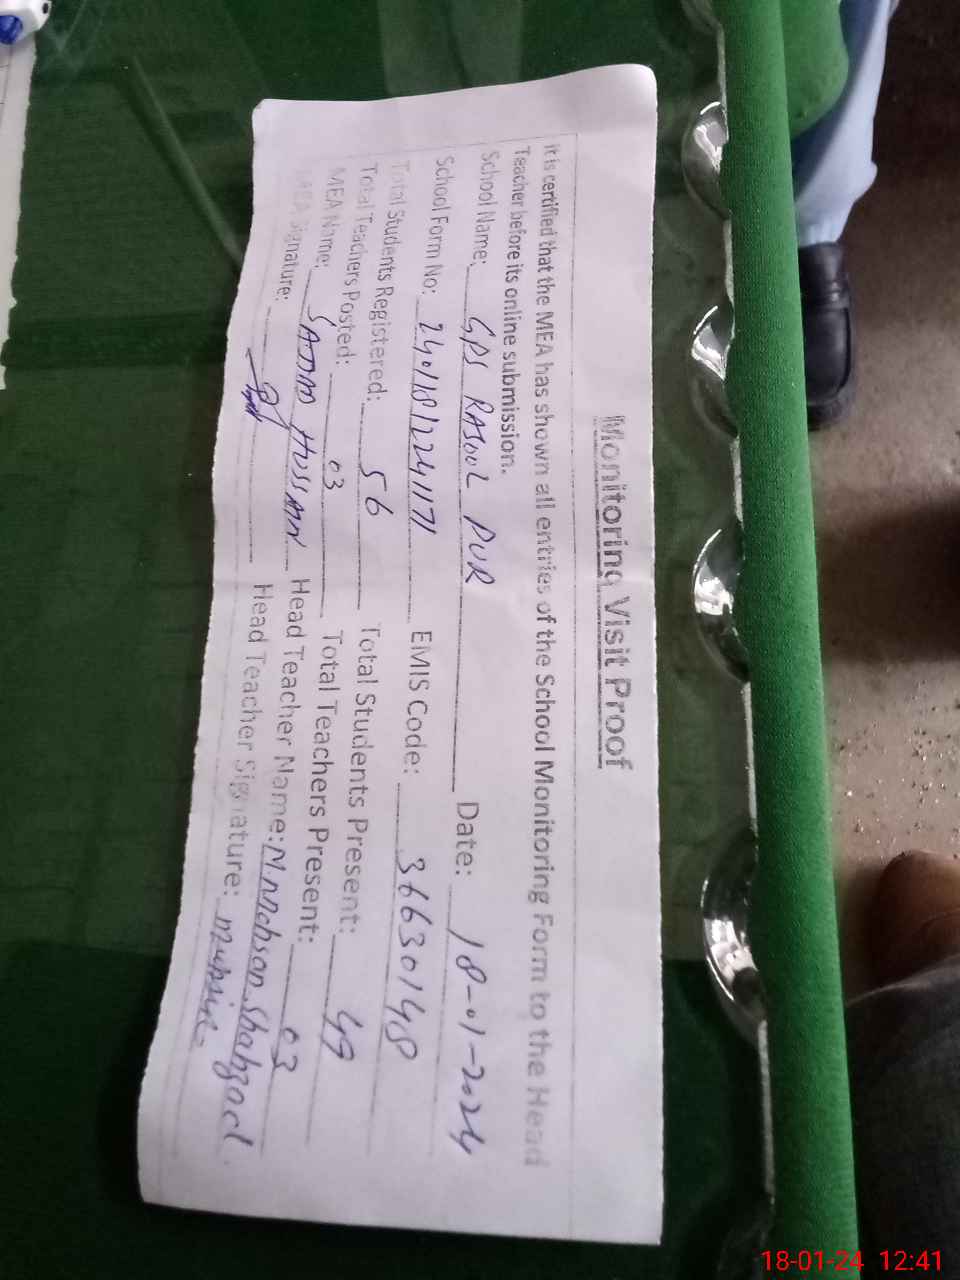 Monitoring Visit Proof
it is certified that the MEA has shown all entries of the School Monitoring Form to the Head
Teacher before its online submission.
School Name: GPS RASOOL PUR Date: 18-01-2024
School Form No: 240118/2241171 EMIS Code: 36630148
Total Students Registered: 56 Total Students Present: 49
Total Teachers Posted: 03 Total Teachers Present: 03
MEA Name: SADAM HUSSAIN Head Teacher Name: Shahzad
MEA Signature: Head Teacher Signature:
18-01-24 12:41